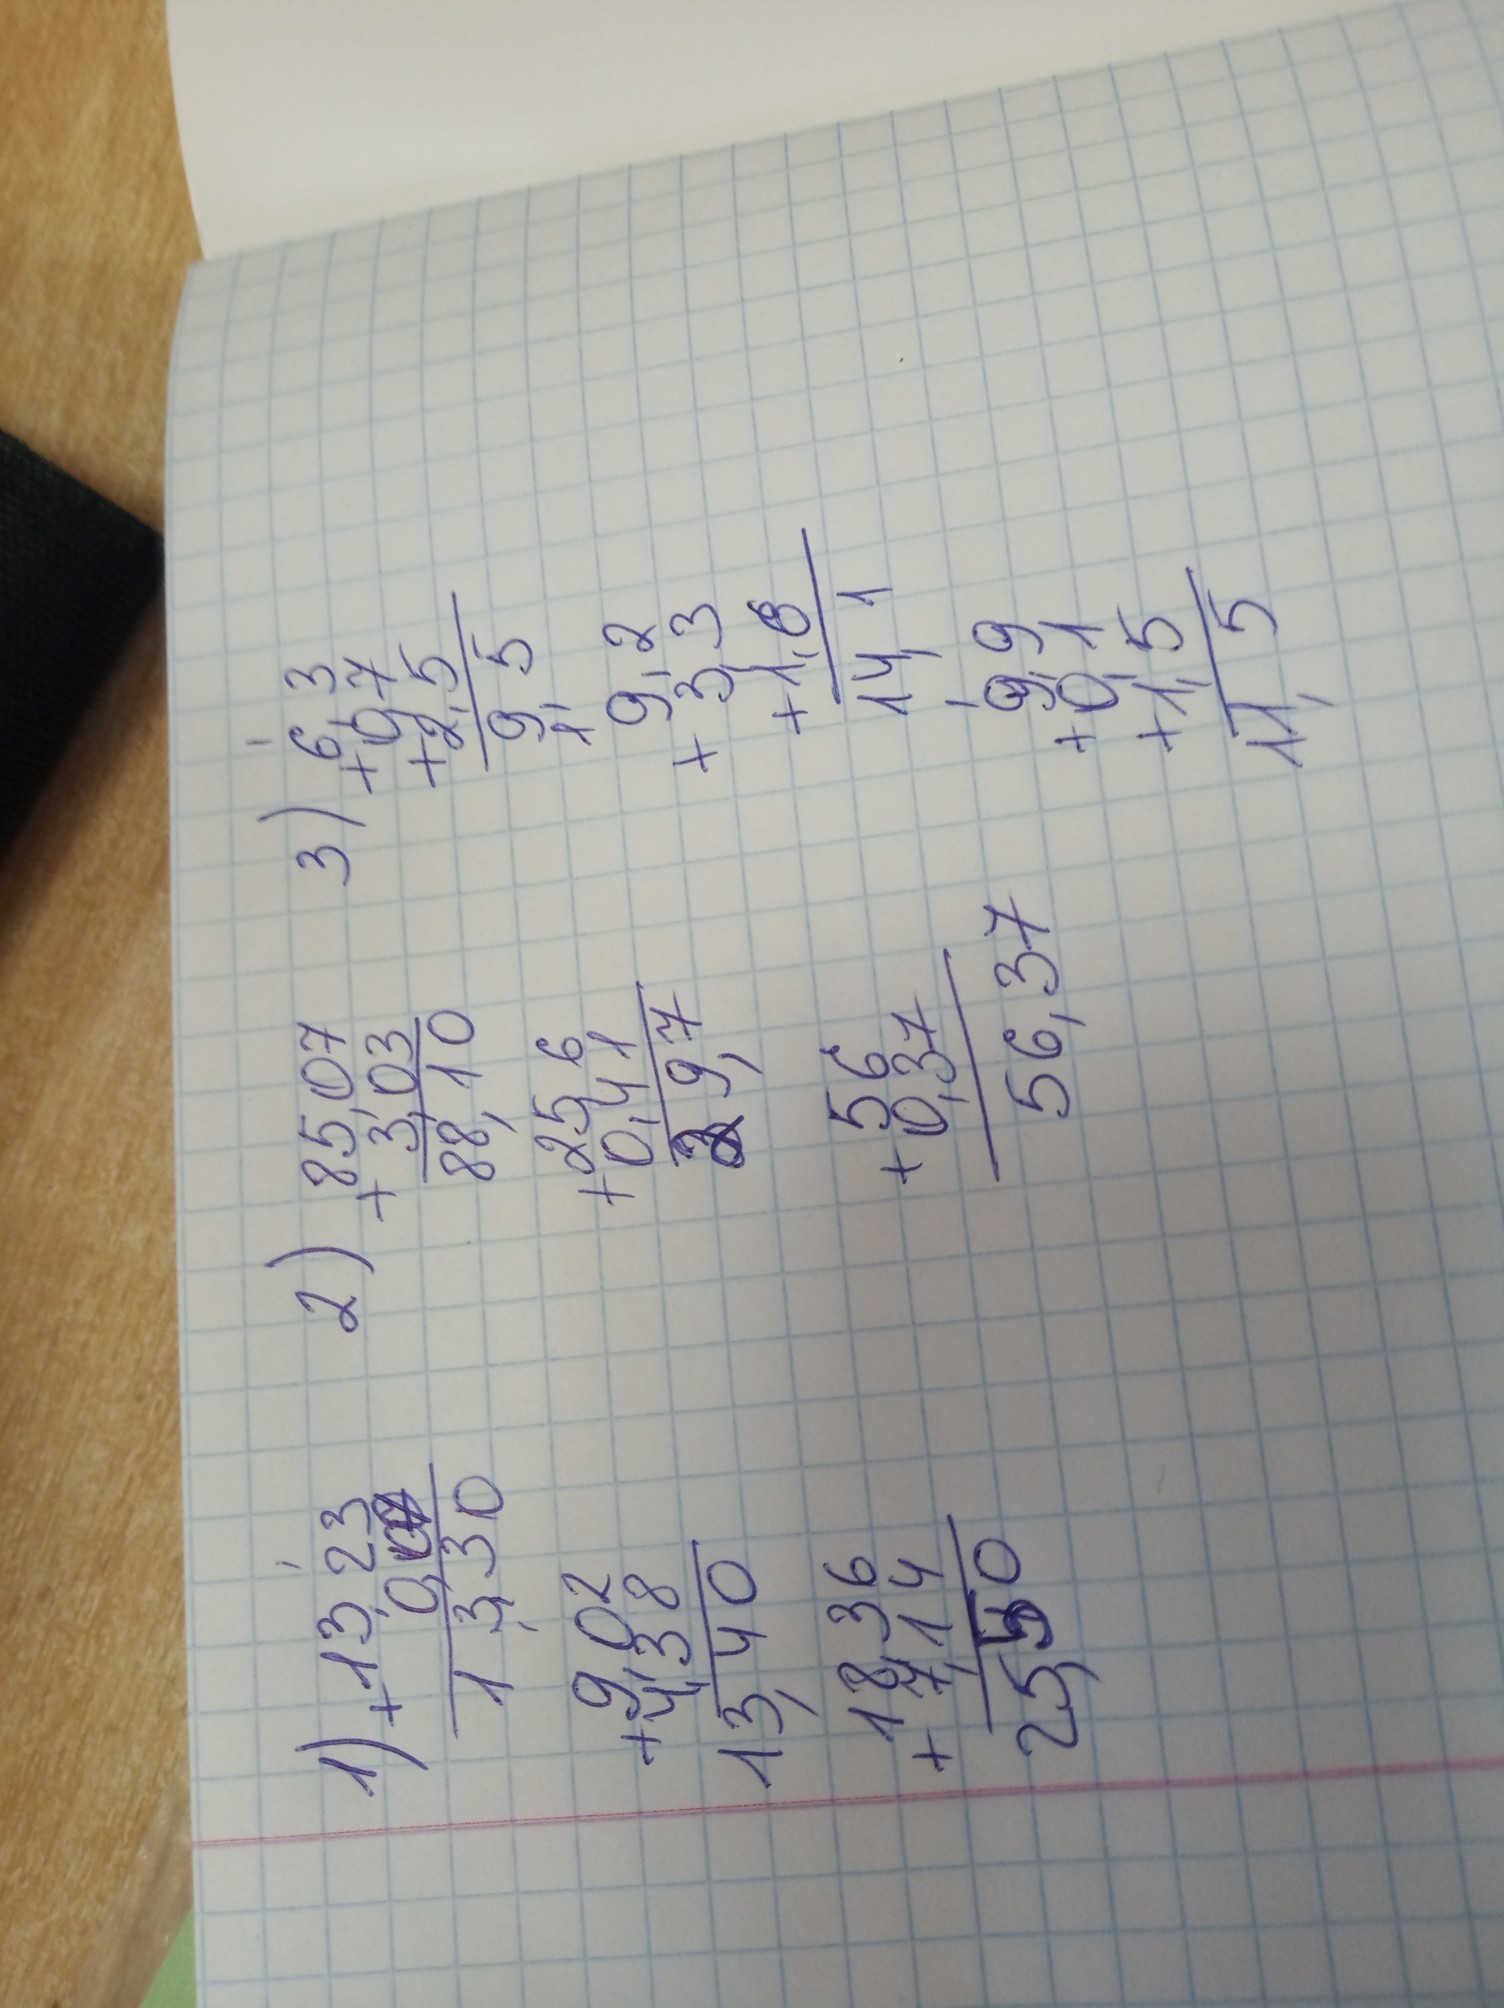 1) +13,23
0,07
13,30
9,02
+4,38
13,40
18,36
+7,14
25,50
2) 85,07
+3,03
88,10
25,6
+0,41
9,7
56
+0,37
56,37
3) 6,3
+0,7
+2,5
9,5
1
9,2
+3,3
+1,6
14,1
9,9
+0,1
+1,5
11,5